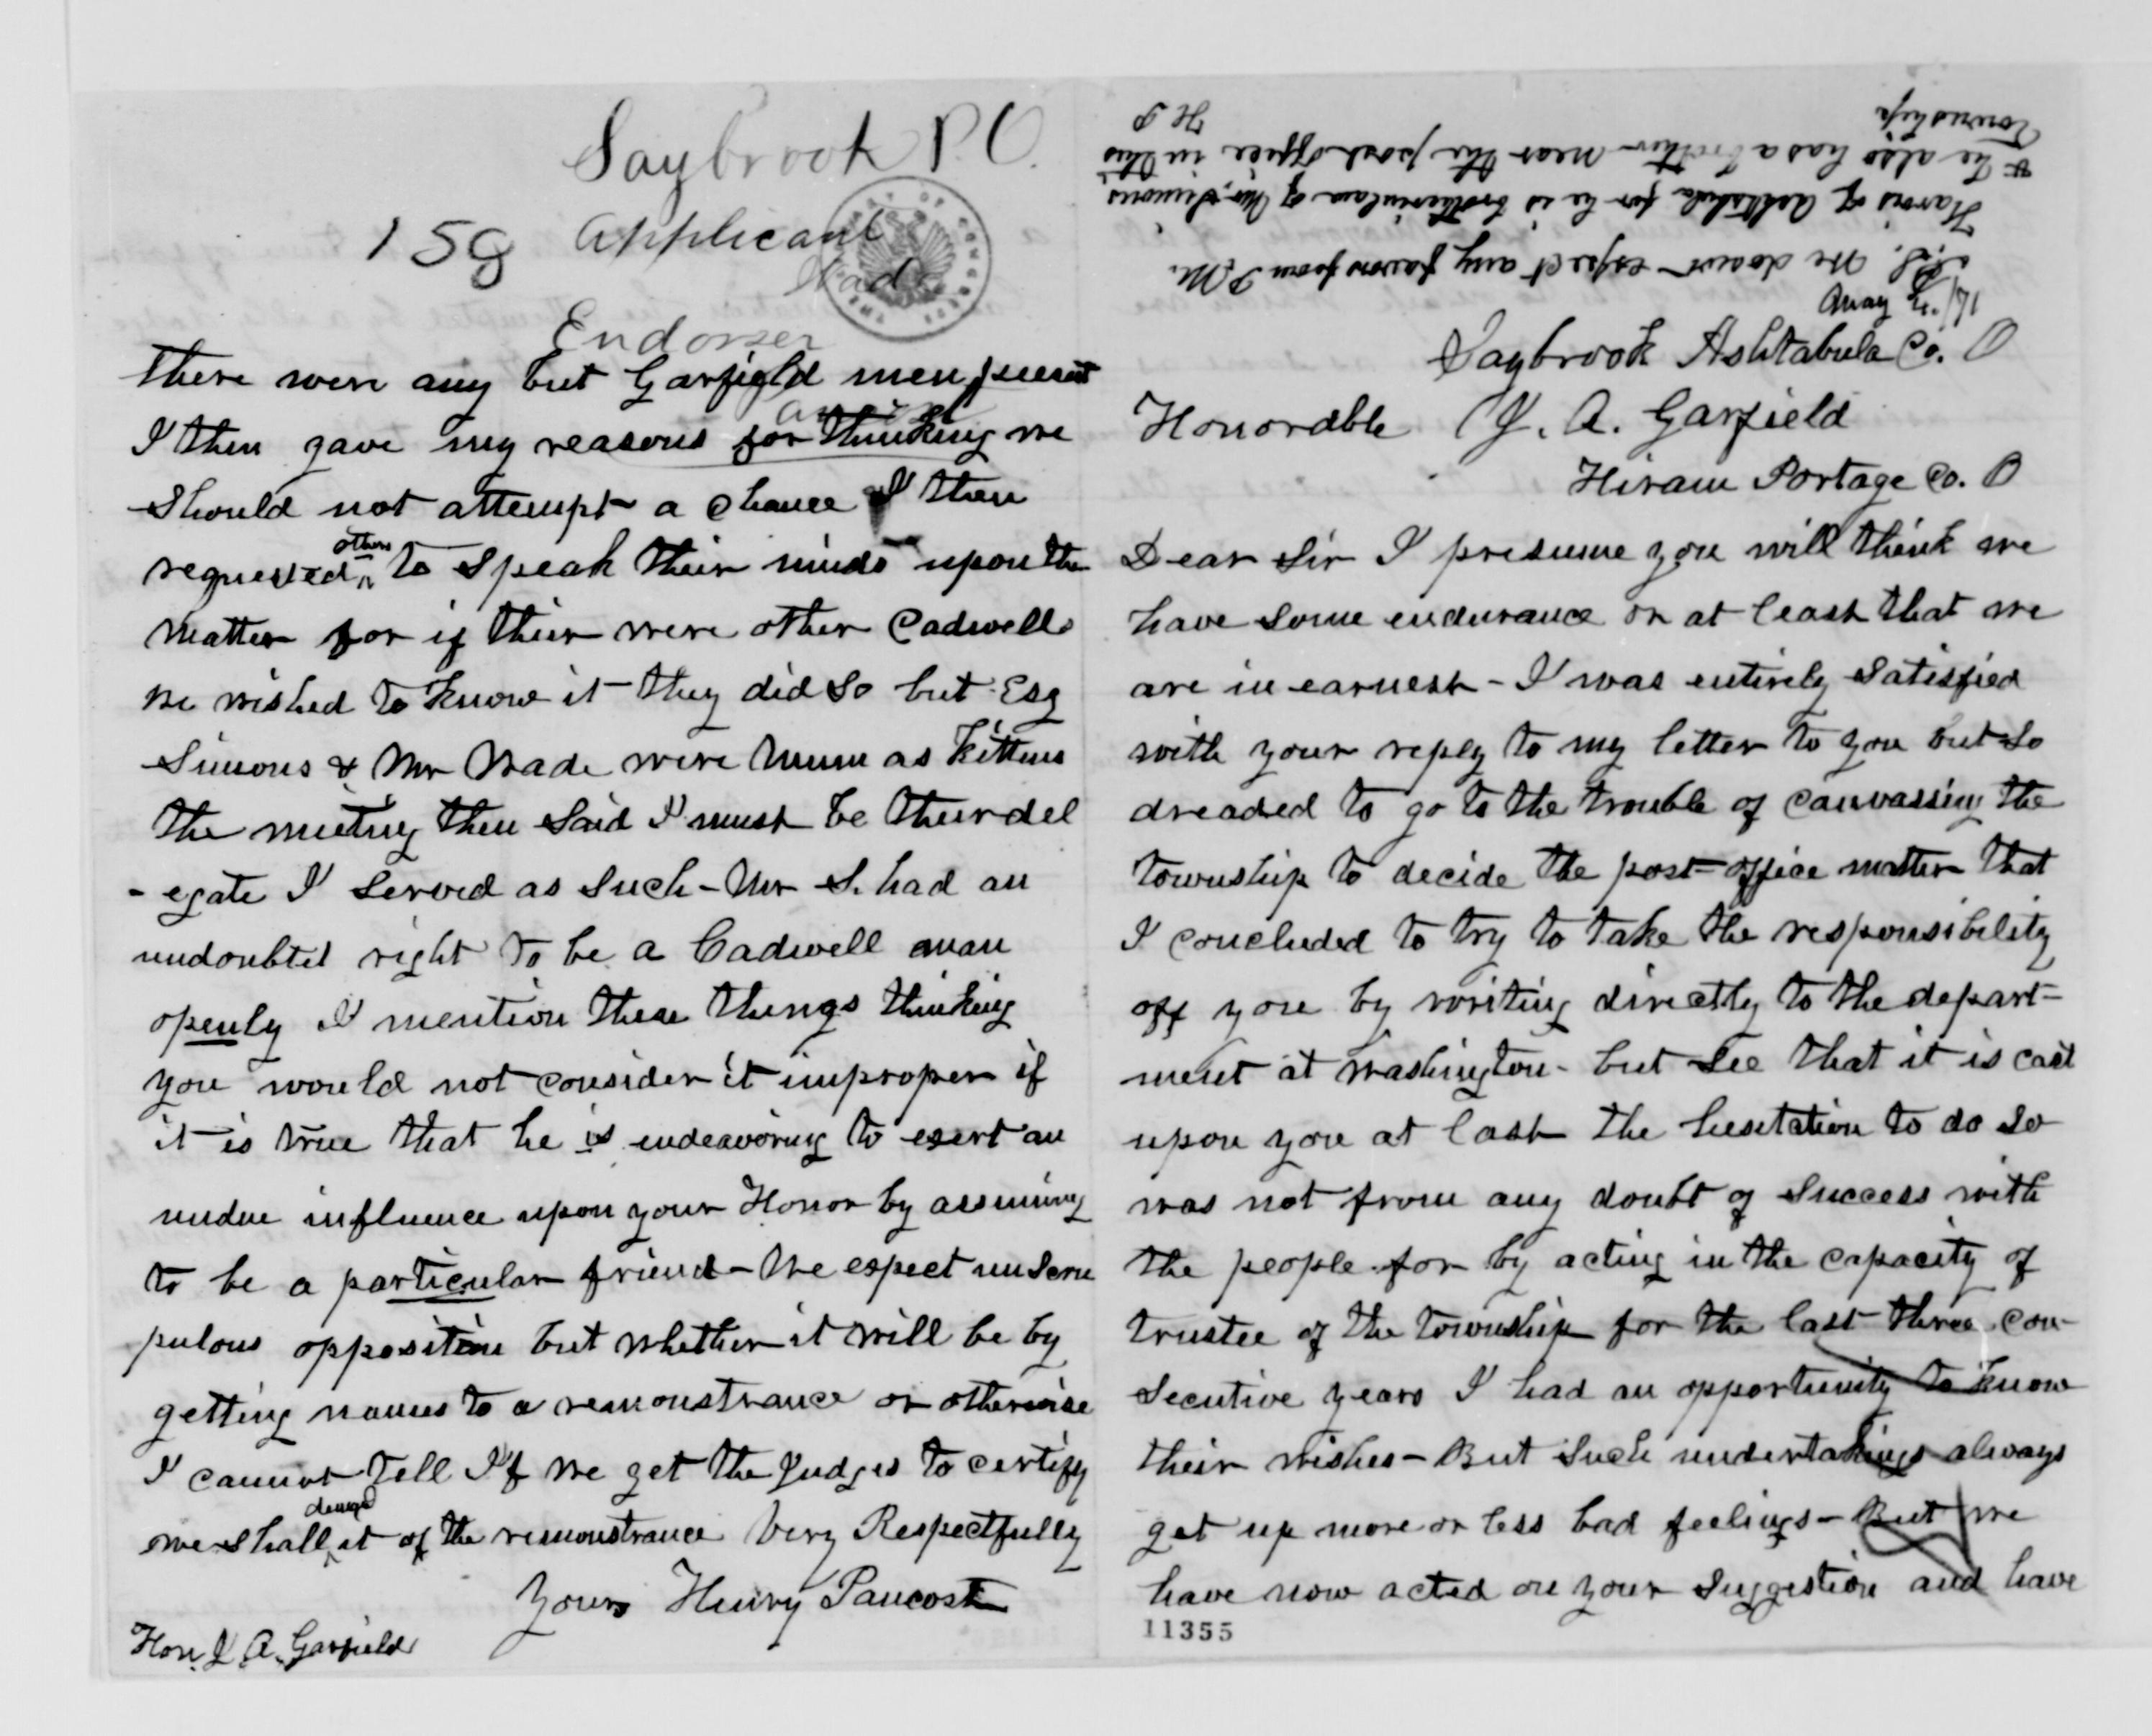 Saybrook P.O.
158 Applicant
Wade
Endorser
there were any but Garfield men present
I then gave my reasons for thinking we
should not attempt a chance & I then
requested others to speak their minds upon the
matter for if their were other Cadwells
we wished to know it they did so but Esq
Simons & Mr Wade were mum as kittens
the meeting then said I must be their del
-egate I served as such - Mr S. had an
undoubted right to be a Cadwell man
openly I mention these things thinking
you would not consider it improper if
it is true that he is endeavoring to exert an
undue influence upon your Honor by assuming
to be a particular friend - We expect unscru
pulous opposition but whether it will be by
getting names to a remonstrance or otherwise
I cannot tell If we get the Judges to certify
we shall it of the remonstrance Very Respectfully
Yours Henry Pancost
Hon. J. A. Garfield
Saybrook Ashtabula Co. O
Honorable J. A. Garfield
Hiram Portage Co. O
Dear Sir I presume you will think we
have some endurance or at least that we
are in earnest - I was entirely satisfied
with your reply to my letter to you but so
dreaded to go to the trouble of canvassing the
township to decide the post-office matter that
I concluded to try to take the responsibility
off you by writing directly to the depart-
ment at Washington - but see that it is cast
upon you at last the hesitation to do so
was not from any doubt of success with
the people for by acting in the capacity of
trustee of the township for the last three con-
secutive years I had an opportunity to know
their wishes - But such undertakings always
get up more or less bad feelings - But we
have now acted on your suggestion and have
11355
P.S. We doant expect any favors from P.M.
Harris of Ashtabula for he is brotherinlaw of Mr. Simons
& he also has a brother near the post office in this
Township
H P